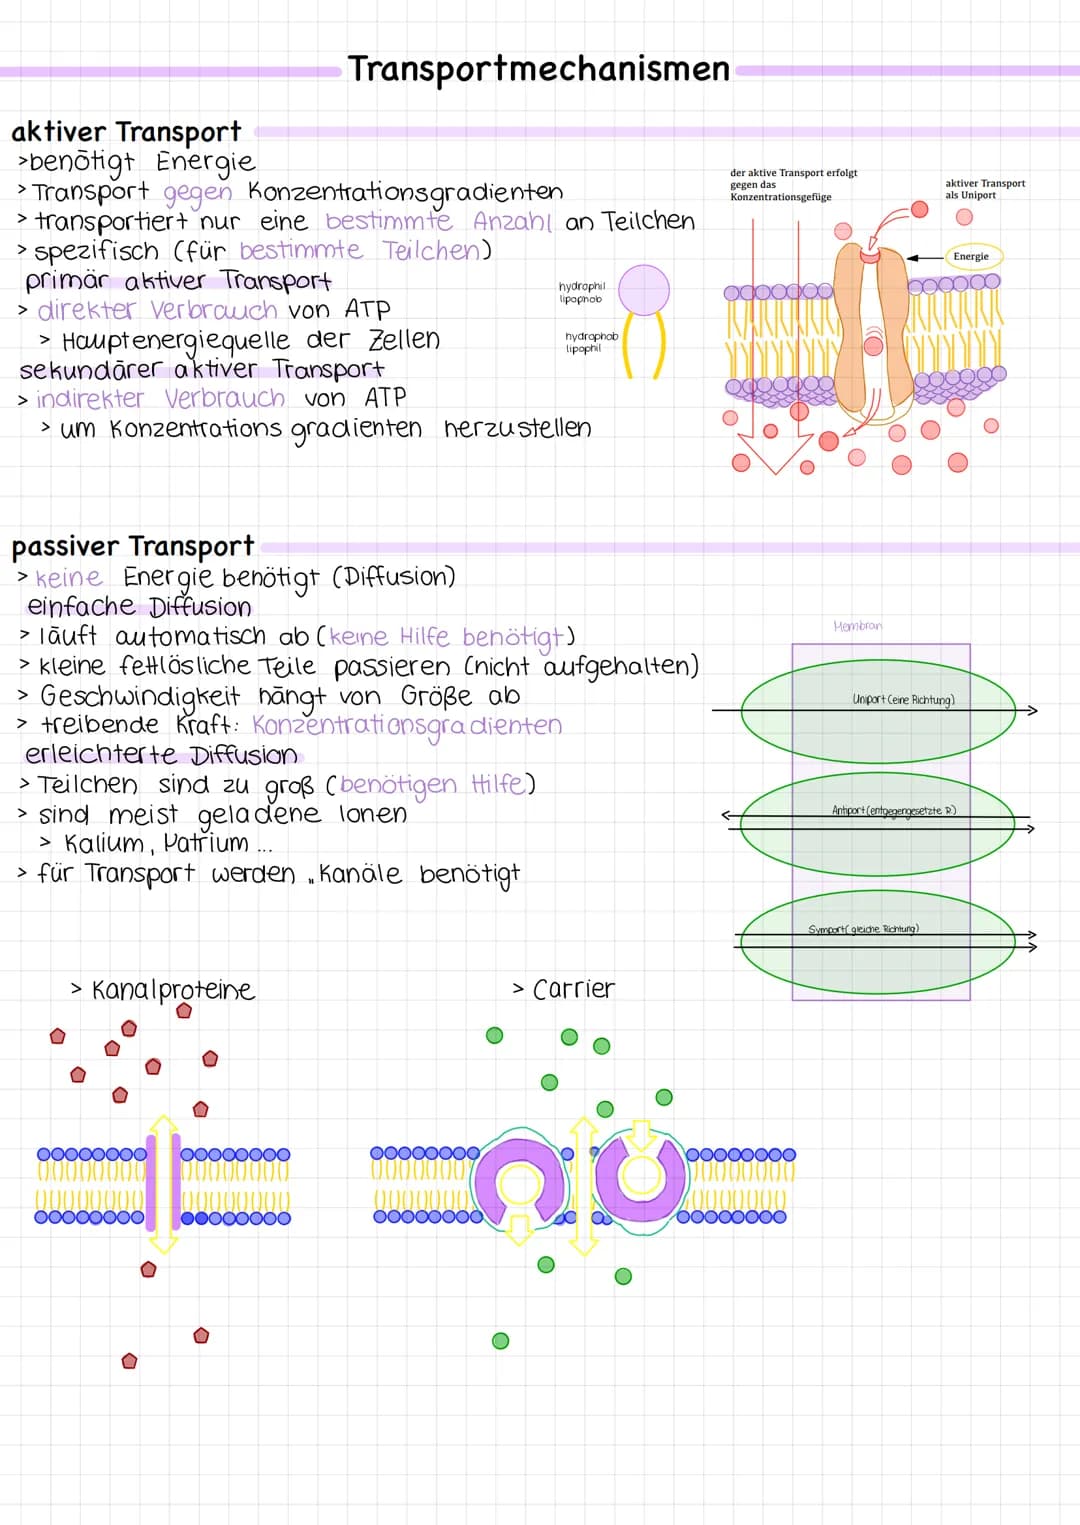 Transportmechanismen
aktiver Transport
>benötigt Energie
> Transport gegen Konzentrationsgradienten
> transportiert nur eine bestimmte Anzahl an Teilchen
> spezifisch (für bestimmte Teilchen)
primär aktiver Transport
> direkter Verbrauch von ATP
> Hauptenergiequelle der Zellen
sekundärer aktiver Transport
> indirekter Verbrauch von ATP
> um Konzentrationsgradienten herzustellen
hydrophil
lipophob
hydrophob
lipophil
der aktive Transport erfolgt
gegen das
Konzentrationsgefüge
aktiver Transport
als Uniport
Energie
passiver Transport
> keine Energie benötigt (Diffusion)
einfache Diffusion
> läuft automatisch ab (keine Hilfe benötigt)
> kleine fettlösliche Teile passieren (nicht aufgehalten)
> Geschwindigkeit hängt von Größe ab
> treibende Kraft: Konzentrationsgradienten
erleichterte Diffusion
> Teilchen sind zu groß (benötigen Hilfe)
> sind meist geladene Ionen
> Kalium, Natrium ...
> für Transport werden „Kanäle benötigt
Membran
Uniport (eine Richtung)
Antiport (entgegengesetzte R)
Symport( gleiche Richtung)
> Kanalproteine
> Carrier